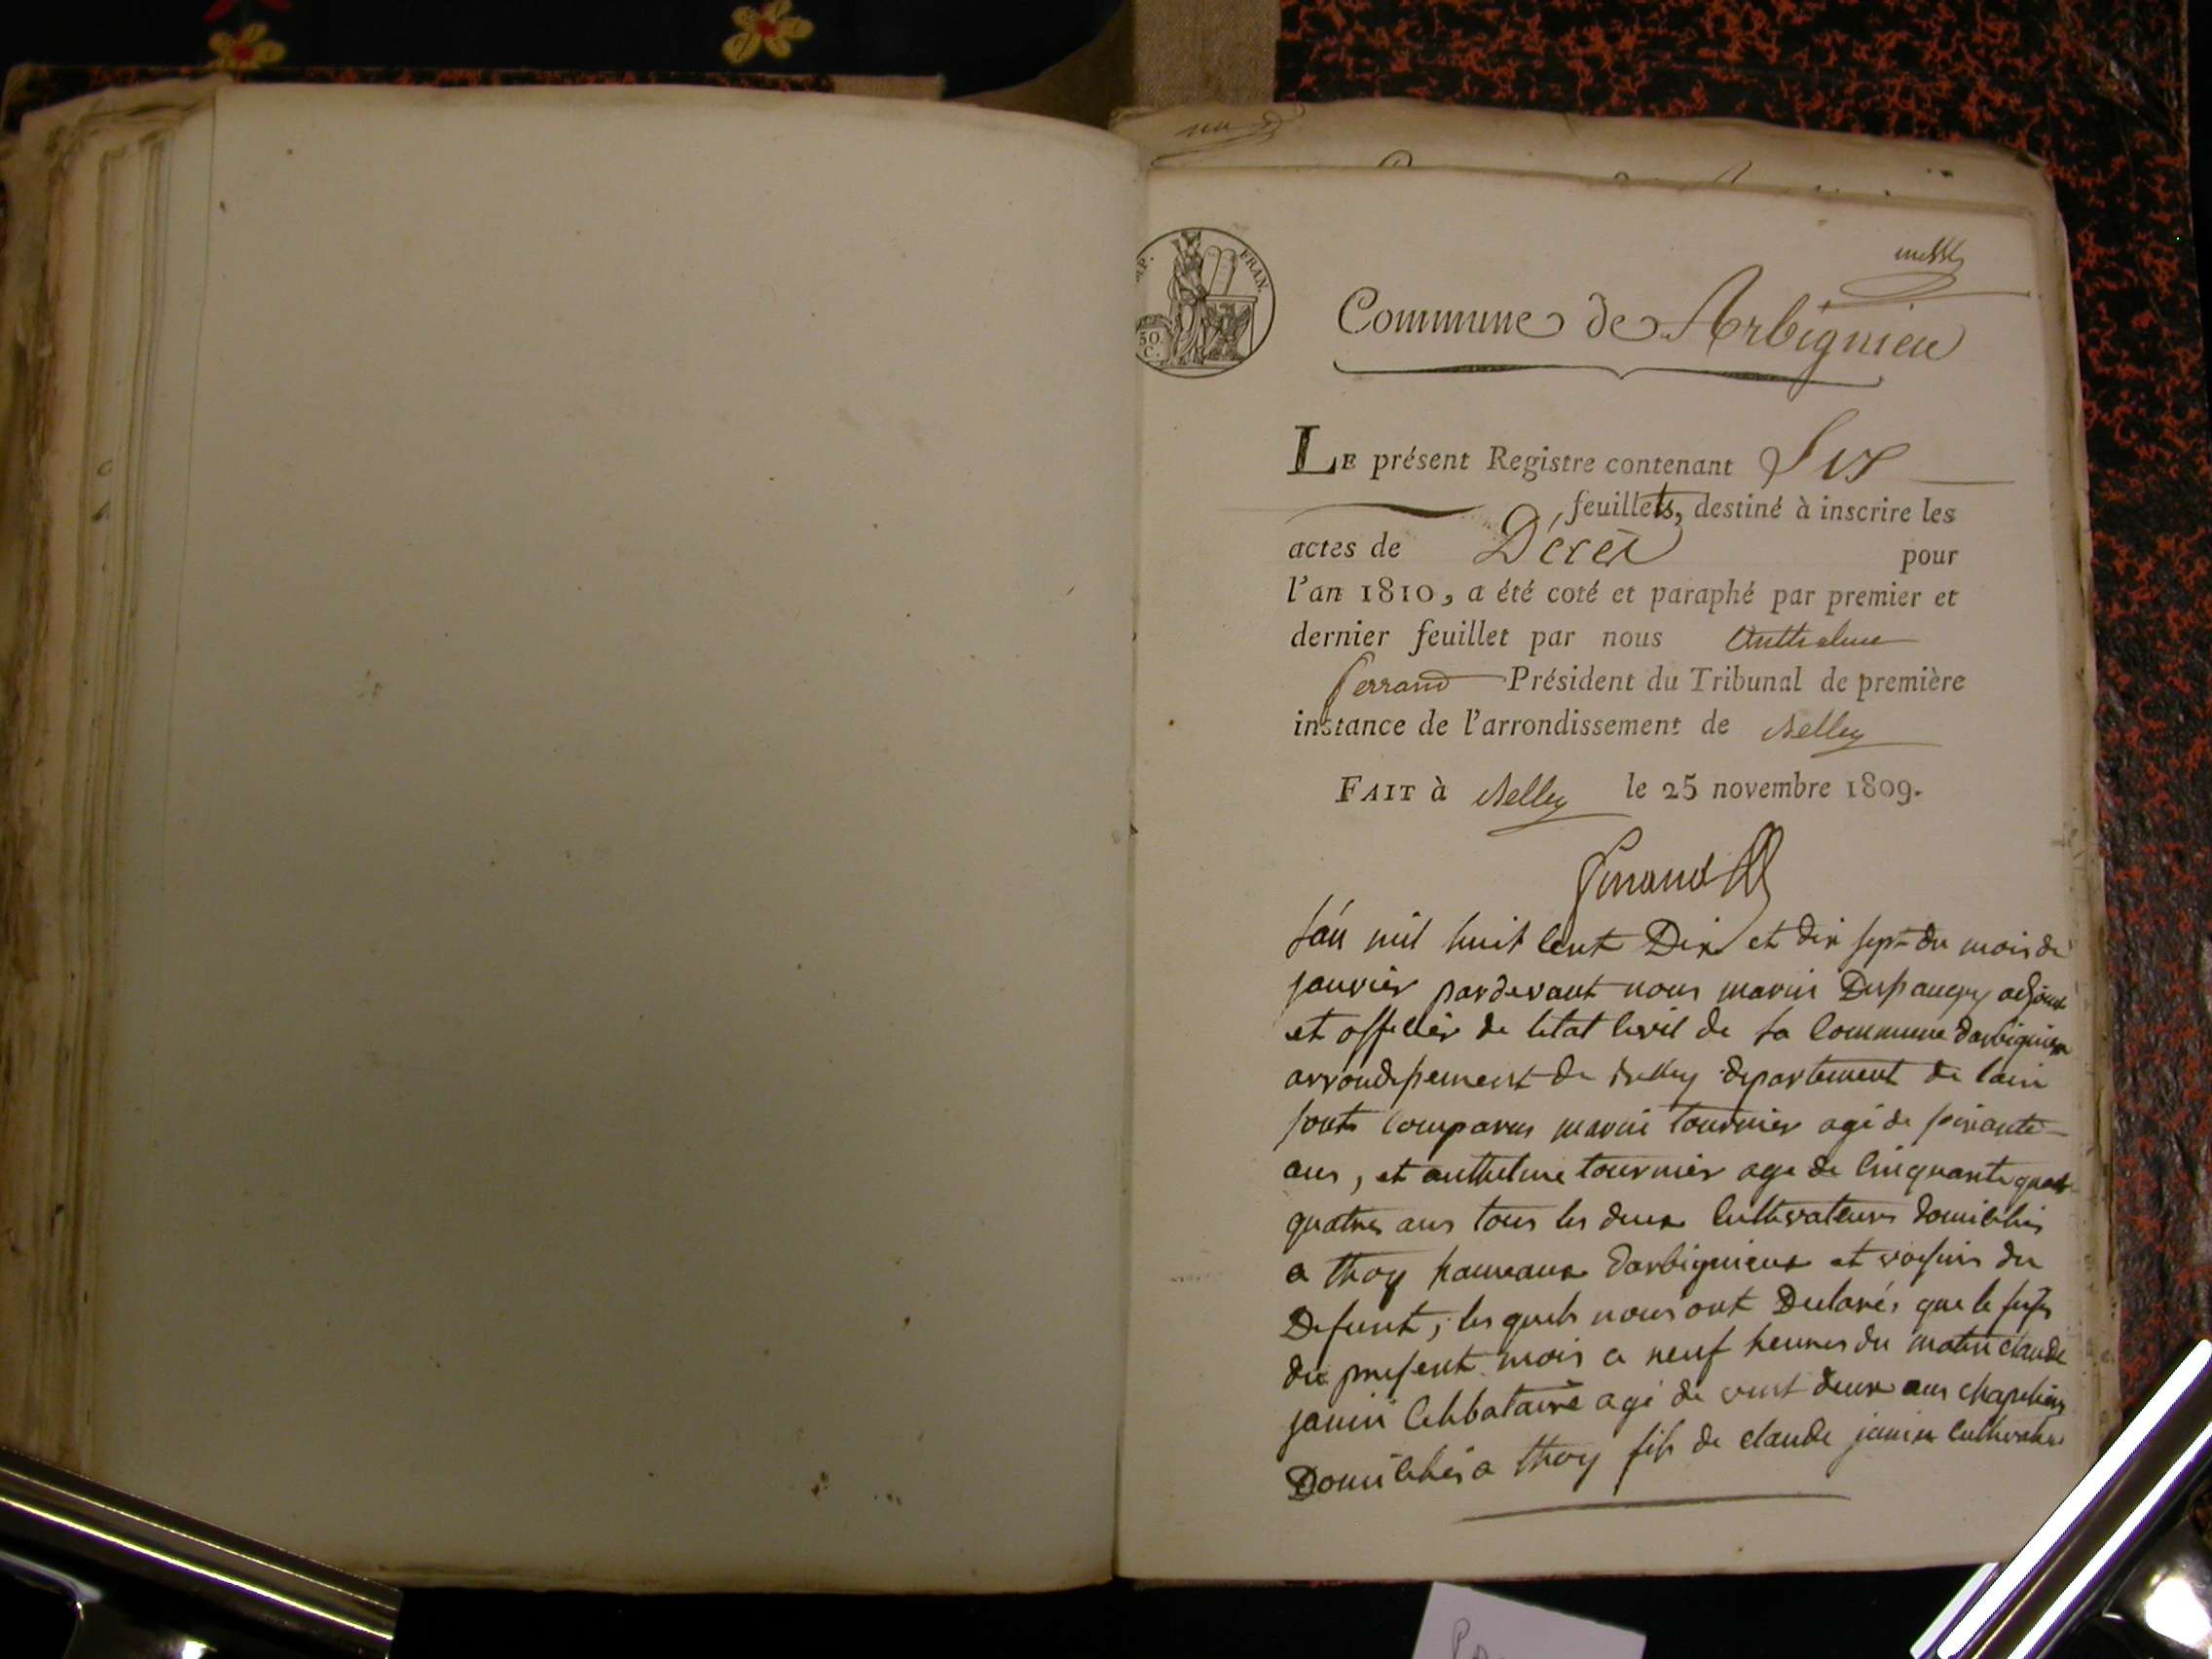 FRAN.
50.
C.
Commune de Arbignieu
LE présent Registre contenant Six
feuillets, destiné à inscrire les
actes de Décès pour
l'an 1810, a été coté et paraphé par premier et
dernier feuillet par nous Anthelme
Ferrand Président du Tribunal de première
instance de l'arrondissement de Belley
FAIT à Belley le 25 novembre 1809.
Ferrand
Lan mil huit cent Dix et dix sept du mois de
janvier pardevant nous marin adjoint
et officier de letat civil de la Commune darbignieu
arrondissement de belley departement de lain
sont comparus marin tournier agé de soixante
ans, et anthelme tournier age de cinquante quat
quatres ans tous les deux cultivateurs domiciliés
a thoy hameaux darbignieux et voisins du
Defunt, les quels nous ont Declarés que le
du present mois a neuf heures du matin claude
janin celibataire agé de vint deux ans
Domiciliés a thoy fils de claude janin cultivateur